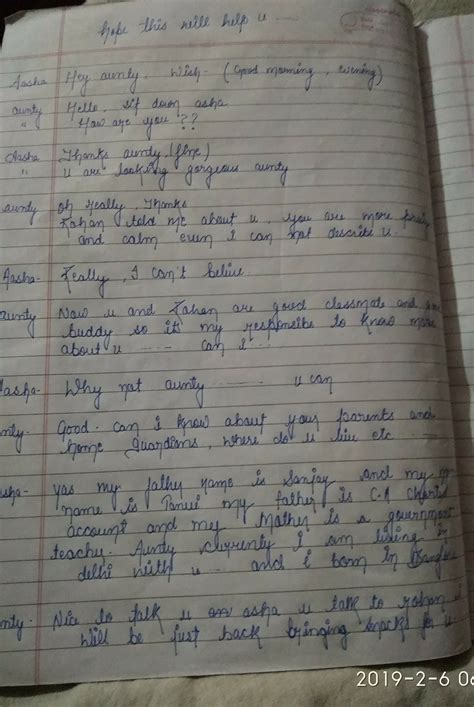 hope this will help u ......
Aasha Hey aunty. Wish- (Good morning, evening)
aunty Hello. sit down asha
" How are you ??
Aasha Thanks aunty, (fine)
" u are looking gorgeous aunty
aunty oh really, thanks
Rohan told me about u, you are more pretty
and calm even I can not describe u.
Aasha- Really, I can't belive
aunty Now u and Rohan are good classmate and
buddy so its my responsible to know more
about u ...... can I ...
Aasha- Why not aunty ...... u can
nty- Good. can i know about your parents and
home guardians, where do u live etc ...
sha- yas my fathy name is Sanjay and my
name is Tanvi my father is C.A Chart
account and my Mother is a government
teachy. Aunty currently I am living in
delhi with u ... and i born in Banglore
nty- Nice to talk u on asha u talk to rohan
will be just back bringing snacks for u
2019-2-6 06